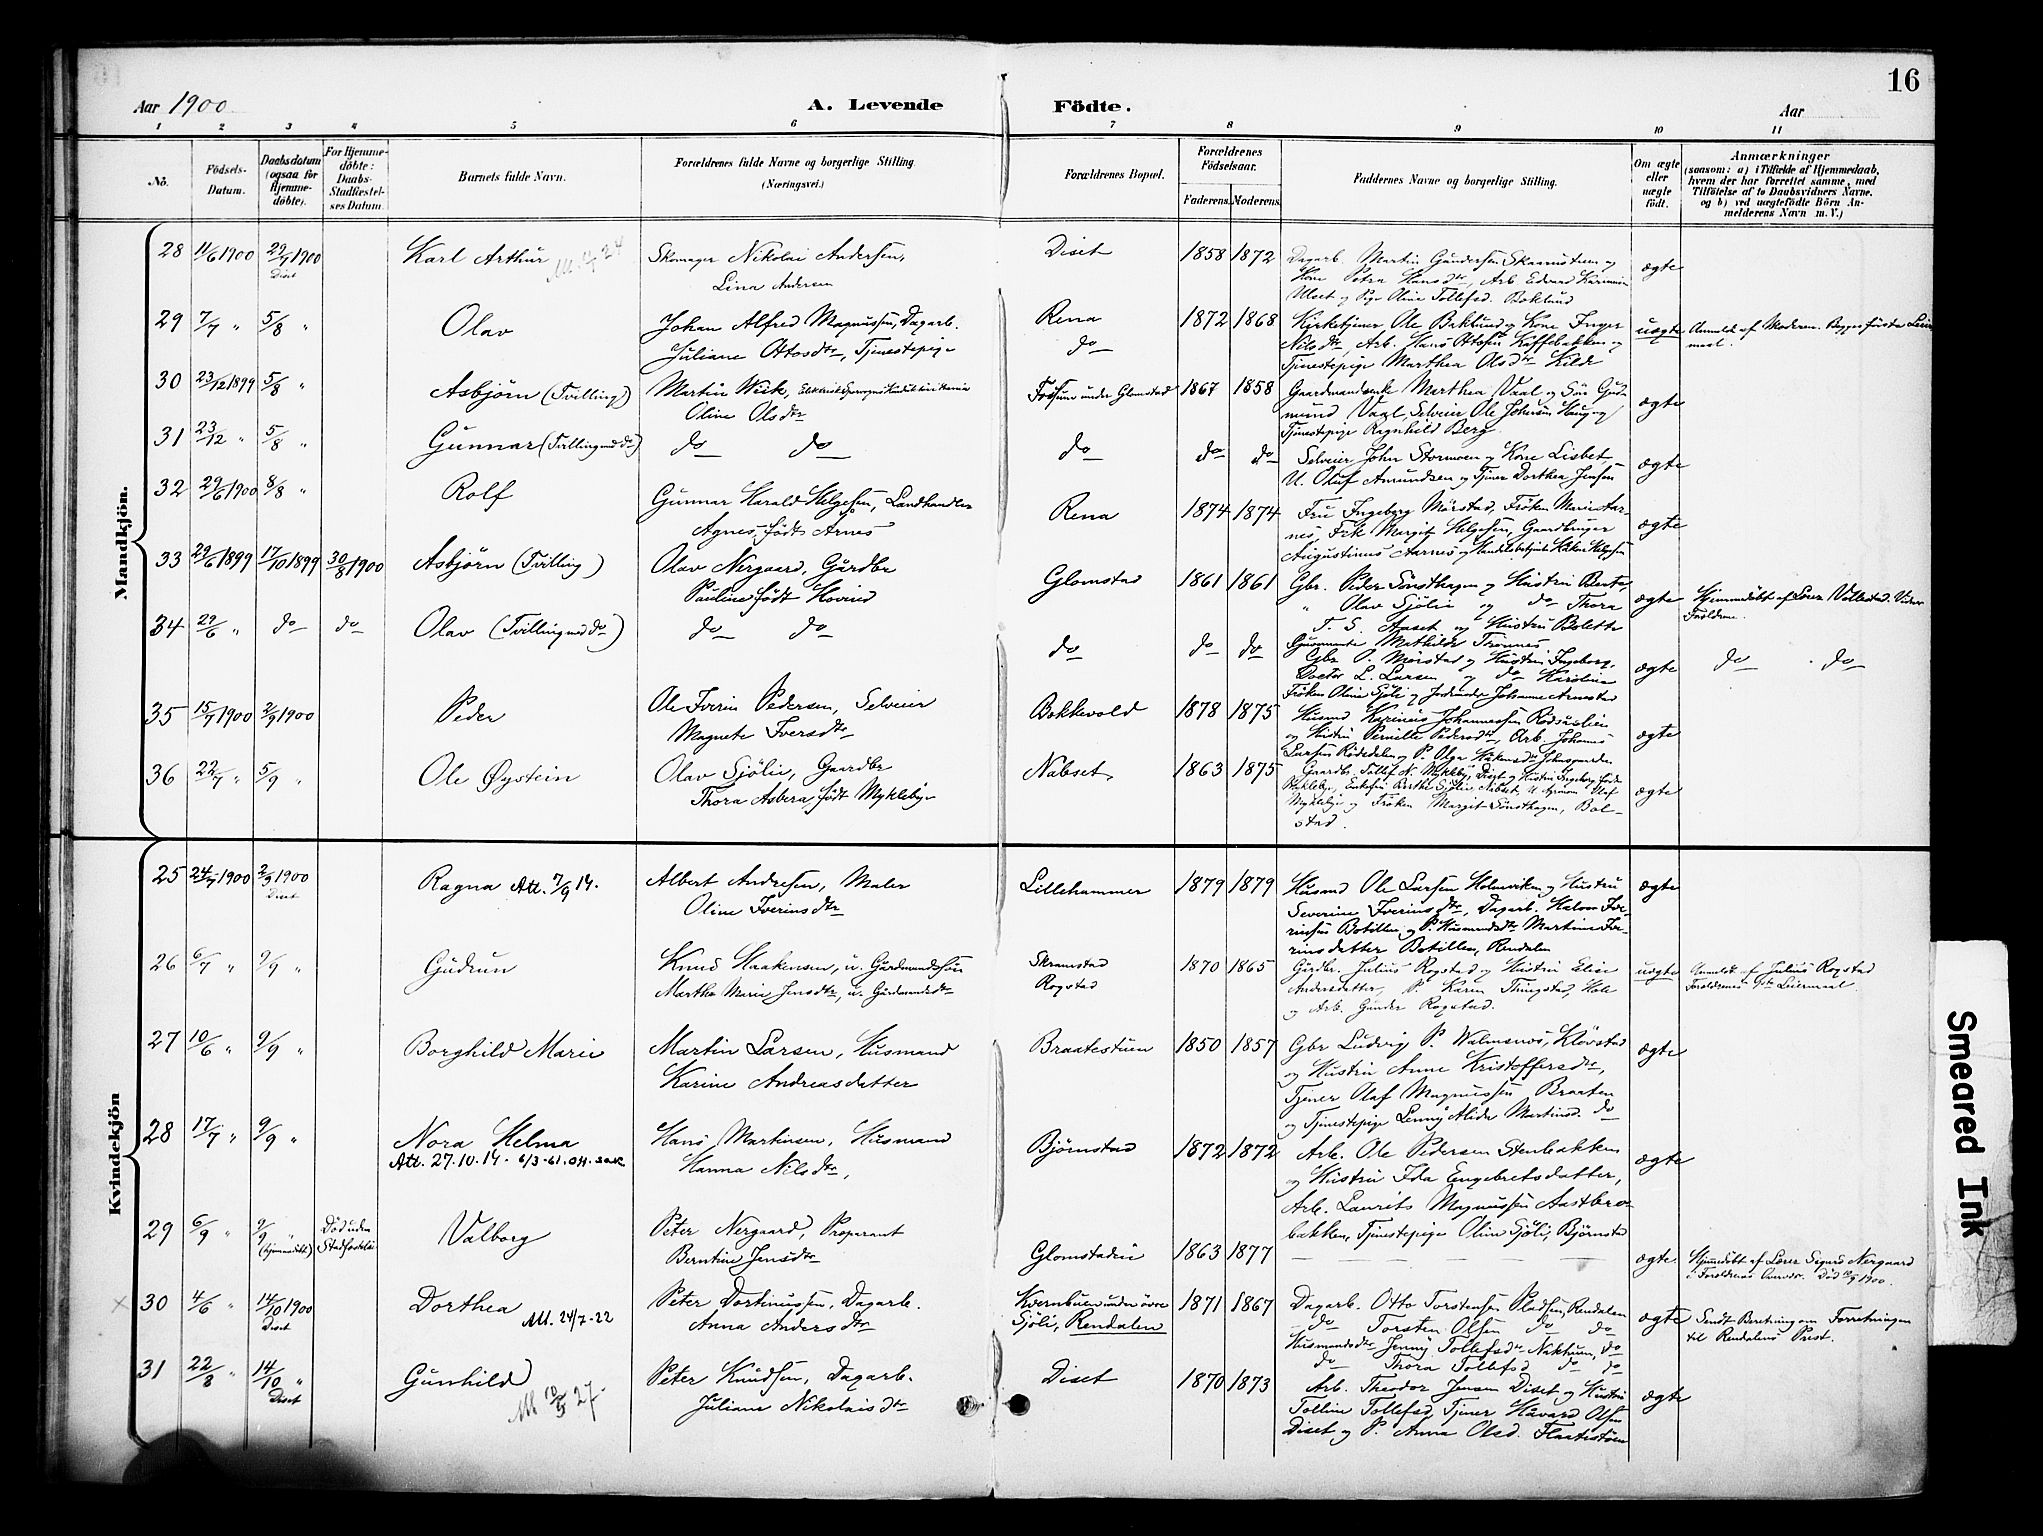 16
Aar 1900
A. Levende Födte.
Aar
1 2 3 4 5 6 7 8 9 10 11
No.
Födsels-Datum.
Daabsdatum (ogsaa for Hjemmedöbte).
For Hjemmedöbte: Daabs-Stadfæstelses Datum
Barnets fulde Navn.
Forældrenes fulde Navne og borgerlige Stilling. (Næringsvei.)
Forældrenes Bopæl.
Forældrenes Födselsaar.
Faderens. Moderens.
Faddernes Navne og borgerlige Stilling.
Om ægte eller uægte födt.
Anmærkninger
(saasom: a) i Tilfælde af Hjemmedaab, hvem der har forrettet samme, med Tilföielse af to Daabsvidners Navne. og b) ved uægtefödte Börn Anmelderens Navn m. V.)
Mandkjön.
28 11/6 1900 29/7 1900 Diset Karl Arthur Skomager Nikolai Andersen, Lina Andersen Diset 1858 1872 Dagarb. Martin Gundersen og Kone Petra Hansdtr, Arb. Edvard Ulset og Pige Oline Tollefsd. Baklund ægte
29 7/7 " 5/8 " Olav Johan Alfred Magnussen, Dagarb. Juliane Ottosdtr, Tjenestepige Rena do 1872 1868 Kirketjener Ole Baklund og Kone Inger Nilsdtr, Arb. Hans Ottosen Koffebakken og Tjenestepige Marthea Olsdtr Kilde uægte Anmeldt af Moderen. Begges förste Leiermaal.
30 23/12 1899 5/8 " Asbjörn (Tvilling) Martin Wiik, Oline Olsdtr Fossum under Glomstad 1867 1858 Gaardmandsenke Marthea Vaal og Sön Gudmund Vaal, Selveier Ole Johnsen Haug og Tjenestepige Ragnhild Berg. ægte
31 23/12 " 5/8 " Gunnar (Tvilling med do) do do do do do Selveier John Stormoen og Kone Lisbet U. Oluf Amundsen og Tjener Dorthea Jensen ægte
32 29/6 1900 8/8 " Rolf Gunnar Harald Helgesen, Landhandler Agnes, född Arnes Rena 1874 1874 Fru Ingeborg Mörstad, Fröken Marie Aarnes, Frk Margit Helgesen, Gaardbruger Augustinus Aarnes og Handelsbetjent Håken Helgesen ægte
33 29/6 1899 17/10 1899 30/8 1900 Asbjörn (Tvilling) Olav Nergaard, Gårdbr Pauline född Hovind Glomstad 1861 1861 Gbr. Peder Sönsthagen og Hustru Benta, " Olav Sjölie og do Thora T. S. Aaset og Hustru Bolette ægte Hjemmedöbt af Lærer Vollestad. Vidner Forældrene.
34 29/6 " do do Olav (Tvilling med do) do do do do do Mathilde Trönnes Gbr. O. Mörstad og Hustru Ingeborg, Doctor L. Larsen og do Karoline Fröken Olina Sjöli og Jordmoder Johanne Arnestad ægte do do
35 15/7 1900 2/9 1900 Peder Ole Iverin Pedersen, Selveier Magnete Iversdtr Bakkevold 1878 1875 Husmd Karinius Johannessen Rödsaslien og Hustru Pernille Pedersdtr, Arb. Johannes Larsen Rödsdalen og P. Olga Håkensdtr ægte
36 22/7 " 5/9 " Ole Øystein Olav Sjölie, Gaardbr Thora Asbera född Mykleby Nabset 1863 1875 Gaardbr. Tollef N. Mykleby, Diset og Hustru Ingeborg Enkefru Berthe Sjölie, Nabset, U. Olaf Mykleby og Fröken Margit Sönsthagen, Bolstad. ægte
Kvindekjön
25 24/7 1900 2/9 1900 Diset Ragna Att. 7/9 14. Albert Andresen, Maler Oline Iverinsdtr Lillehammer 1879 1879 Husmd Ole Larsen Holmviken og Hustru Severine Iverinsdtr, Dagarb. Halvor Iverinsen Botillen og P. Husmandsdtr Martine Iverinsdatter Botillen, Rendalen ægte
26 6/7 " 9/9 " Gudrun Knud Haakensen, u. Gårdmandssön Marthe Marie Jensdtr, u. Gårdmandsdtr Skramstad Rogstad 1870 1865 Gårdbr. Julius Rogstad og Hustru Elise Andersdatter, P. Karen Thingstad, Hole og Arb. Gunder Rogstad. uægte Anmeldt af Julius Rogstad Forældrenes 1ste Leiermaal.
27 10/6 " 9/9 " Borghild Marie Martin Larsen, Husmand Karine Andreasdatter Braatestuen 1850 1857 Gbr Ludvig P. Walmsnes, Klövstad og Hustru Anne Kristoffersdtr, Tjener Olaf Magnussen Braaten og Tjenestepige Lenny Alida Martinsd. do ægte
28 17/7 " 9/9 " Nora Helma Att. 27.10.14. 6/3-61. OH. sak Hans Martinsen, Husmand Hanna Nilsdtr, Bjørnstad 1872 1872 Arb. Ole Pedersen Stenbakken og Hustru Ida Engebretsdatter, Arb. Laurits Magnussen Aastbrobakken, Tjenestepige Oline Sjöli, Bjørnstad ægte
29 6/9 " 9/9 " (hjemmedöbt) Död uden Stadfæstelse Valborg Peter Nergaard, Proprietær Berntine Jensdtr Glomstaden 1863 1877 ægte. Hjemmedöbt af Lærer Sigurd Nergaard i Forældrenes Overvær. Död 1900.
30 4/6 " 14/10 1900 Diset Dorthea Att. 24/7-22 Peter Dortinussen, Dagarb. Anna Andersdtr Kvernbuen under övre Sjöli, Rendalen 1871 1867 Dagarb. Otto Torstensen Pladsen, Rendalen do Torsten Olsen do do Husmandsdtr Jenny Tollefsdtr Nektum, do do Thora Tollefsd do do ægte Sendt Beretning om Forretningen til Rendalens Præst.
31 22/8 " 14/10 " Diset Gunhild Att 10/5 27- Peter Knudsen, Dagarb. Juliane Nikolaisdtr Diset 1870 1873 Arb. Theodor Jensen Diset og Hustru Tolline Tollefsd, Tjener Håvard Olsen Diset og P. Anna Olsd. Flaatestöen ægte
Smeared Ink